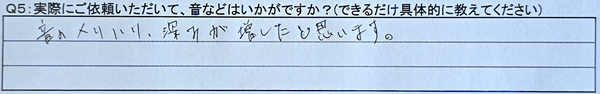 Q5:実際にご依頼いただいて、音などはいかがですか?(できるだけ具体的に教えてください)
音のメリハリ、深みが増したと思います。